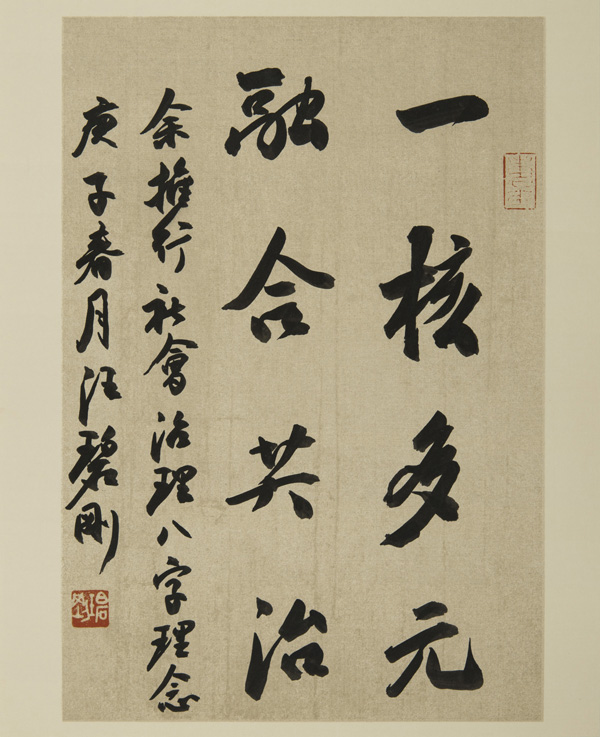 一核多元
融合共治
余推行社會治理八字理念
庚子春月汪碧刚